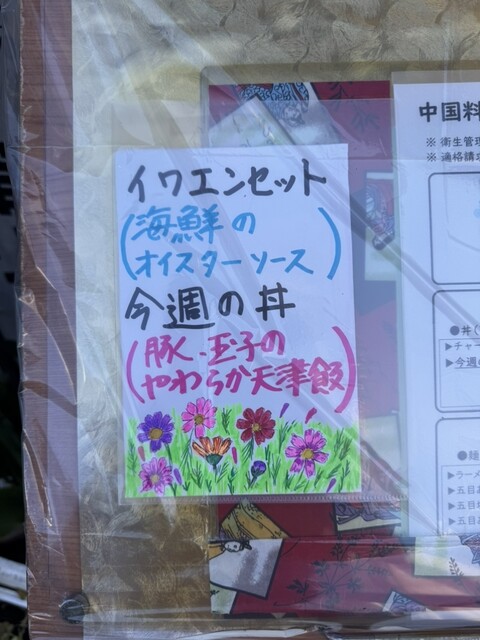 イワエンセット
(海鮮の
オイスターソース)
今週の丼
(豚、玉子の
やわらか天津飯)
中国料
※ 衛生管理
※ 適格請求
●丼(
▶チャー
▶今週の
●麺
▶ラーメ
▶五目あ
▶五目
▶五目あ